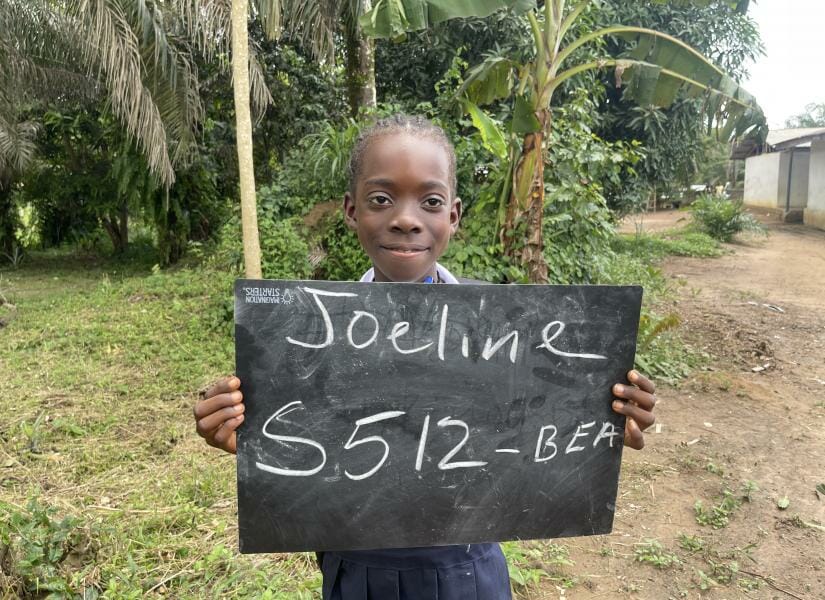 IMAGINATION
STARTERS.
Joeline
S512-BEA